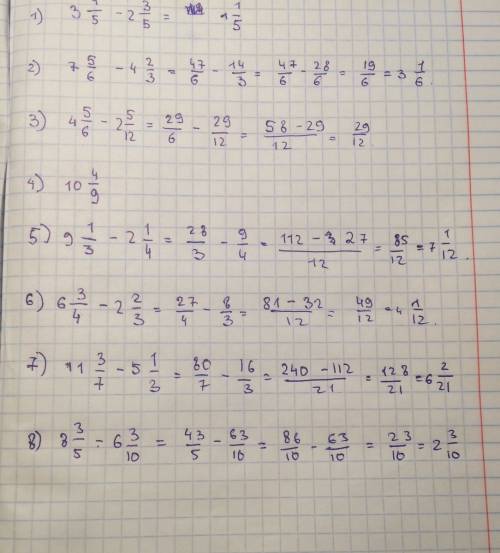 1) 3 /5 - 2 3/5 = 1 1/5
2) 7 5/6 - 4 2/3 = 47/6 - 14/3 = 47/6 - 28/6 = 19/6 = 3 1/6.
3) 4 5/6 - 2 5/12 = 29/6 - 29/12 = 58 - 29/12 = 29/12
4) 10 4/9
5) 9 1/3 - 2 1/4 = 28/3 - 9/4 = 112 - 27/12 = 85/12 = 7 1/12.
6) 6 3/4 - 2 2/3 = 27/4 - 8/3 = 81 - 32/12 = 49/12 = 4 1/12.
7) 11 3/7 - 5 1/3 = 80/7 - 16/3 = 240 - 112/21 = 128/21 = 6 2/21
8) 8 3/5 - 6 3/10 = 43/5 - 63/10 = 86/10 - 63/10 = 23/10 = 2 3/10